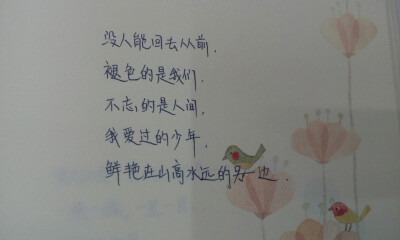 没人能回去从前.
褪色的是我们.
不忘的是人间.
我爱过的少年.
鲜艳在山高水远的另一边.